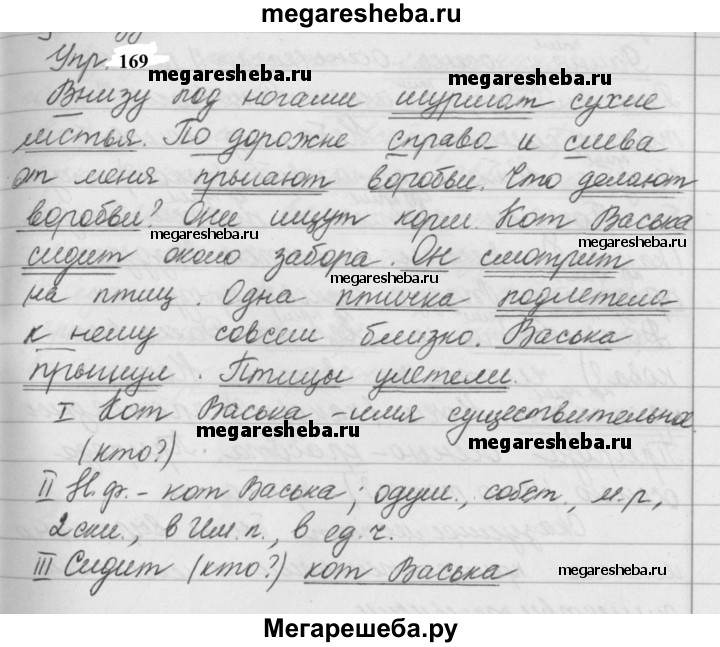 megaresheba.ru
Упр. 169
Внизу под ногами шуршат сухие
листья. По дорожке справа и слева
от меня прыгают воробьи. Что делают
воробьи? Они ищут корм. Кот Васька
сидит около забора. Он смотрит
на птиц. Одна птичка подлетела
к нему совсем близко. Васька
прыгнул. Птицы улетели.
I Кот Васька - имя существительное.
(кто?)
II Н.ф. - кот Васька; одуш., собст, м.р,
2 скл., в Им.п., в ед.ч.
III Сидит (кто?) кот Васька
megaresheba.ru
megaresheba.ru
megaresheba.ru
megaresheba.ru
megaresheba.ru
megaresheba.ru
megaresheba.ru
megaresheba.ru
Мегарешеба.ру